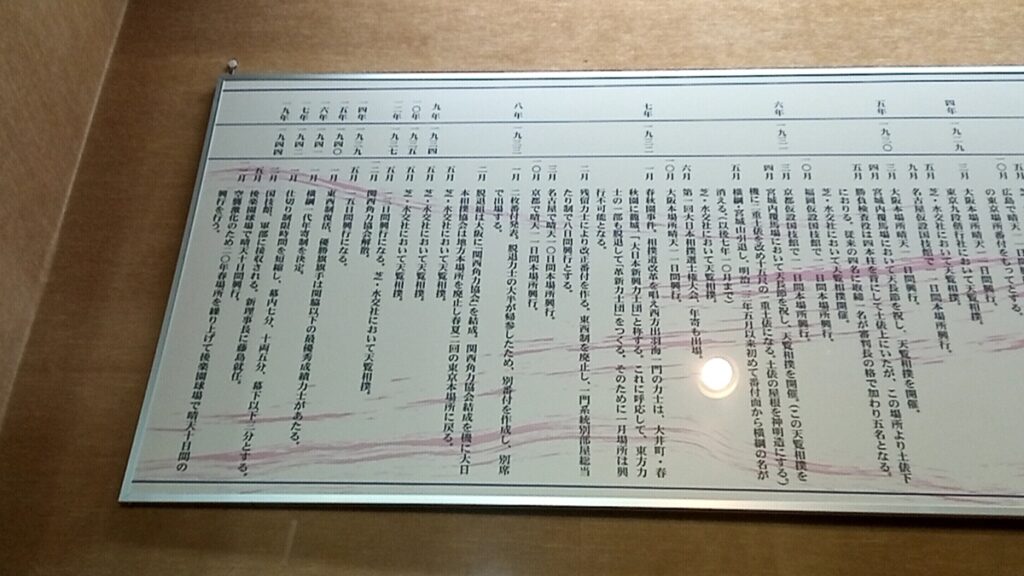 広島で晴天一一日間興行。
の東京本場所番付をもって
四年 一九二九
東京九段偕行社において天覧相撲。
芝・水交社において天覧相撲とする。
五月
九月 名古屋仮設国技館で一一日間本場所興行。
五年 一九三〇
三月 大阪本場所晴天一一日間興行。
四月 宮城内覆馬場において天長節を祝し、天覧相撲を開催。
五月 勝負検査役は四本柱を背にして土俵上にいたが、この場所より土俵下
におりる。従来の四名に取締一名が審判長の格で加わり五名となる。
芝・水交社において天覧相撲開催。
一〇月 福岡仮設国技館で一一日間本場所興行。
六年 一九三一
三月 京都仮設国技館で一一日間本場所興行。
四月 宮城内覆馬場において天長節を祝し、天覧相撲を開催。（この天覧相撲を
機に二重土俵を改め十五尺の一重土俵になる。土俵の屋根を神明造にする。）
五月 横綱・宮城山引退し、明治二三年五月以来初めて番付面から横綱の名が
消える。（以後七年一〇月まで）
芝・水交社において天覧相撲。
六月 第一回大日本相撲選士権大会、年寄も出場。
一〇月 大阪本場所晴天一一日間興行。
七年 一九三二
一月 春秋園事件、相撲道改革を唱え西方出羽海一門の力士は、大井町・春
秋園に籠城、「大日本新興力士団」と称する。これに呼応して、東方力
士の一部も脱退して「革新力士団」をつくる。そのために一月場所は興
行不可能となる。
二月 残留力士により改正番付を作る。東西制を廃止し、一門系統別部屋総当
たり制で八日間興行とする。
三月 名古屋で晴天一〇日間本場所興行。
一〇月 京都で晴天一一日間本場所興行。
八年 一九三三
一月 二枚番付発表。脱退力士の大半が帰参したため、別番付を作成し、別席
で出場する。
二月 脱退組は大阪に「関西角力協会」を結成。関西角力協会結成を機に大日
本相撲協会は地方本場所を廃止し春夏二回の東京本場所に戻る。
五月 芝・水交社において天覧相撲。
九年 一九三四
五月 芝・水交社において天覧相撲。
一〇年 一九三五
五月 芝・水交社において天覧相撲。
一二年 一九三七
五月 一三日間興行になる。芝・水交社において天覧相撲。
一二月 関西角力協会を解散。
一四年 一九三九
五月 一五日間興行になる。
一五年 一九四〇
一月 東西制復活。優勝旗授与は関脇以下の最優秀成績力士があたる。
一六年 一九四一
一月 横綱一代年寄制を決定。
一七年 一九四二
一月 仕切り制限時間を短縮し、幕内七分、十両五分、幕下以下三分とする。
一九年 一九四四
二月 国技館、軍部に接収される。新理事長に藤島就任。
五月 後楽園球場で晴天十日間興行。
空襲激化のため二〇年春場所を繰り上げて後楽園球場で晴天十日間の
興行を行う。